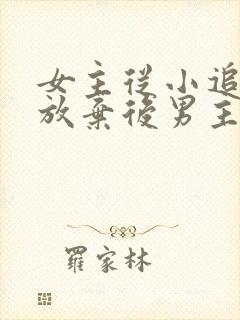 女主從小追
放棄後男主
羅家林